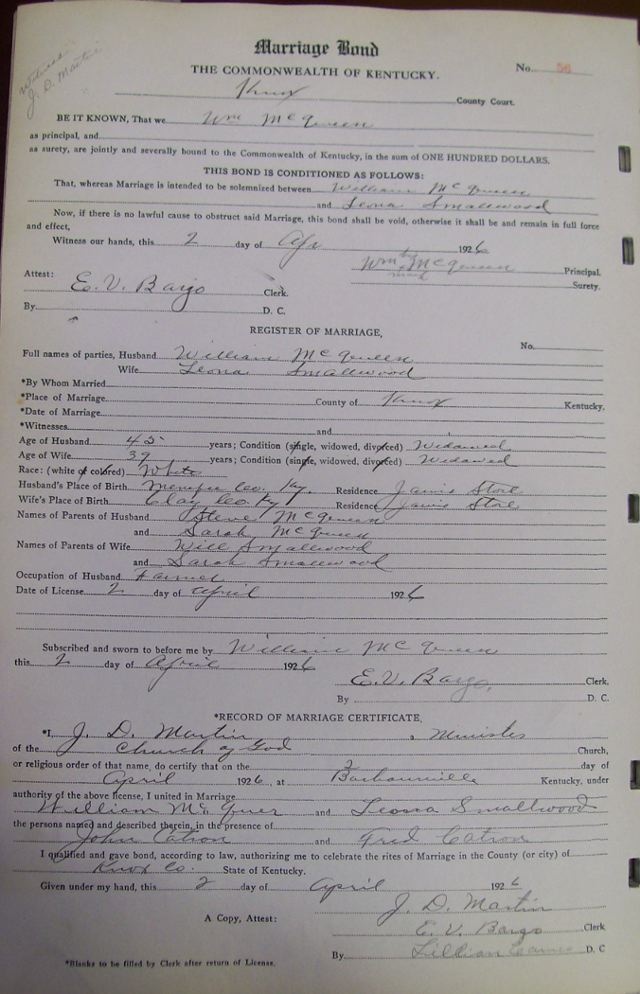 Witness
J. D. Martin
Marriage Bond
THE COMMONWEALTH OF KENTUCKY.
No. 56
Knox County Court.
BE IT KNOWN, That we Wm McQueen
as principal, and
as surety, are jointly and severally bound to the Commonwealth of Kentucky, in the sum of ONE HUNDRED DOLLARS.
THIS BOND IS CONDITIONED AS FOLLOWS:
That, whereas Marriage is intended to be solemnized between William McQueen
and Leona Smallwood
Now, if there is no lawful cause to obstruct said Marriage, this bond shall be void, otherwise it shall be and remain in full force
and effect,
Witness our hands, this 2 day of Apr 1926
Wm his mark McQueen Principal.
Surety.
Attest:
E. V. Bargo Clerk.
By D. C.
REGISTER OF MARRIAGE,
No.
Full names of parties, Husband William McQueen
Wife Leona Smallwood
*By Whom Married
*Place of Marriage County of Knox Kentucky.
*Date of Marriage
*Witnesses and
Age of Husband 45 years; Condition (single, widowed, divorced) Widowed
Age of Wife 39 years; Condition (single, widowed, divorced) Widowed
Race: (white or colored) White
Husband's Place of Birth Co. Ky. Residence Jarvis Store
Wife's Place of Birth Clay Co. Ky Residence Jarvis Store
Names of Parents of Husband Steve McQueen
and Sarah McQueen
Names of Parents of Wife Will Smallwood
and Sarah Smallwood
Occupation of Husband Farmer
Date of License 2 day of April 1926
Subscribed and sworn to before me by William McQueen
this 2 day of April 1926
E. V. Bargo, Clerk.
By D. C.
*RECORD OF MARRIAGE CERTIFICATE,
*I, J. D. Martin, a Minister
of the Church of God Church,
or religious order of that name, do certify that on the 2 day of
April 1926, at Barbourville Kentucky, under
authority of the above license, I united in Marriage
William McQueer and Leona Smallwood
the persons named and described therein, in the presence of
John Catron and Fred Catron
I qualified and gave bond, according to law, authorizing me to celebrate the rites of Marriage in the County (or city) of
Knox Co. State of Kentucky.
Given under my hand, this 2 day of April 1926
J. D. Martin
A Copy, Attest: E. V. Bargo Clerk
By Lillian D. C
*Blanks to be filled by Clerk after return of License.